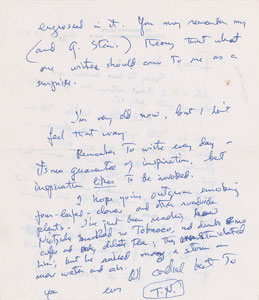 engrossed in it. You may remember my
(and G. Stein's) theory that what
one writes should come to me as a
surprise.
I'm very old now, but I don't
feel that way.
Remember to write every day —
it's no guarantee of inspiration, but
inspiration likes to be invoked.
I keep going outgrown smoking
four-leafed-clover and other roadside
plants. I've just been reading how
Nietzsche in Tobacco, and drank
cups of tea;
him, but he many a storm —
more water and air. All cordial best to
you ever
T.N.